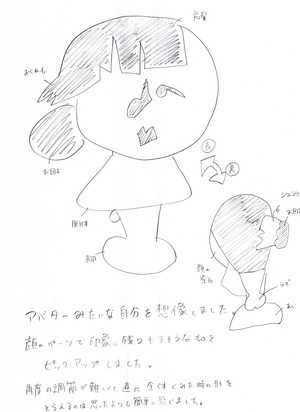 前髪
おくれ毛
お団子
胴体
足
表
裏
シュシュ
お団子
顔の
うで
あし
アバターみたいな自分を想像しました。
顔のパーツで印象に残りやすそうなものを
ピックアップしました。
角度の調節が難しくて、逆に全体でみた時の形を
とらえるのは思ったよりも簡単に感じました。